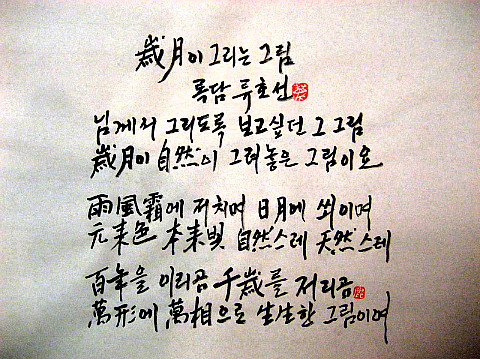 歲月이 그리는 그림
록담 류호선
님께서 그리도록 보고싶던 그 그림
歲月이 自然이 그려놓은 그림이요
雨風霜에 저치며 日月에 쐬이며
元来色 本来빛 自然스레 天然스레
百年을 이리곰 千歲를 저리곰
萬形에 萬相으로 生生한 그림이여